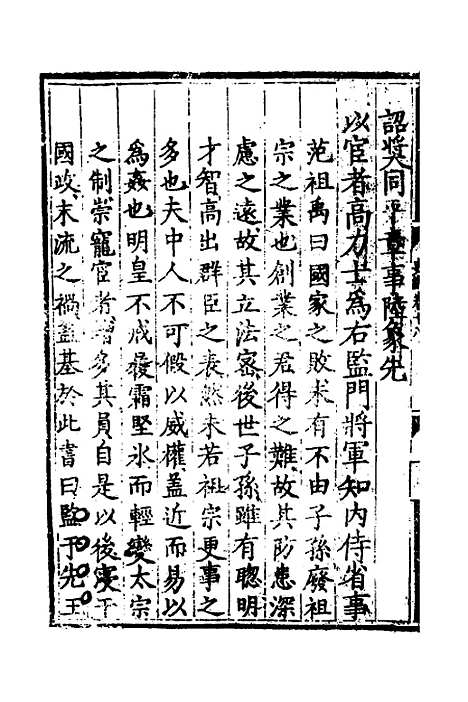 詔奬同平章事陸象先
以宦者高力士為右監門將軍知內侍省事
范祖禹曰國家之敗未有不由子孫廢祖
宗之業也創業之君得之難故其防患深
慮之遠故其立法密後世子孫雖有聰明
才智高出群臣之表然未若祖宗更事之
多也夫中人不可假以威權蓋近而易以
為姦也明皇不戒履霜堅氷而輕變太宗
之制崇寵宦者增多其員自是以後寖干
國政末流之禍蓋基於此書曰監于先王